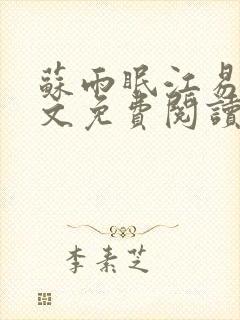 蘇雨眠江易
文免費閱讀
李素芝